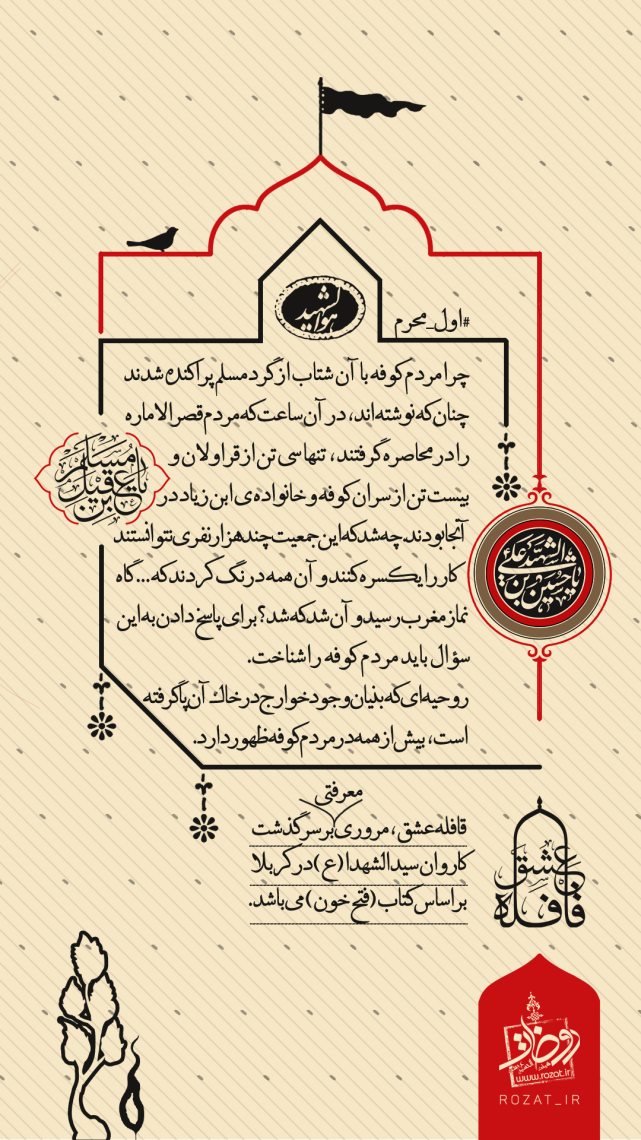 هوالشهید
#اول_محرم
چرا مردم کوفه با آن شتاب از گرد مسلم پراکنده شدند
چنان که نوشته‌اند، در آن ساعت که مردم قصر الاماره
را در محاصره گرفتند، تنها سی تن از قراولان و
بیست تن از سران کوفه و خانواده‌ی ابن زیاد در
آنجا بودند. چه شد که این جمعیت چند هزار نفری نتوانستند
کار را یکسره کنند و آن همه درنگ کردند که...گاه
نماز مغرب رسید و آن شد که شد؟ برای پاسخ دادن به این
سؤال باید مردم کوفه را شناخت.
روحیه‌ای که بنیان وجود خوارج در خاک آن پاگرفته
است، بیش از همه در مردم کوفه ظهور دارد.
یا مسلم بن عقیل
یا حسین بن علی الشهید
معرفتی
قافله عشق، مروری بر سرگذشت
کاروان سیدالشهدا (ع) در کربلا
براساس کتاب (فتح خون) می‌باشد.
قافله عشق
روضات
www.rozat.ir
ROZAT_IR